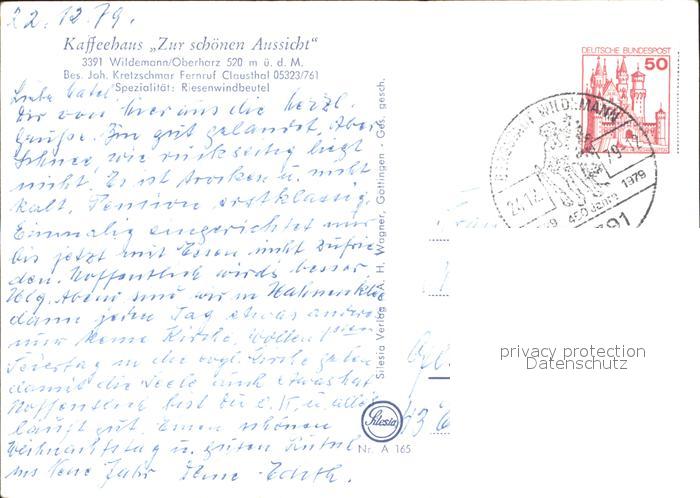 22.12.79.
Kaffeehaus „Zur schönen Aussicht“
3391 Wildemann/Oberharz 520 m ü. d. M.
Bes. Joh. Kretzschmar Fernruf Clausthal 05323/761
Spezialität: Riesenwindbeutel
Liebe
Dir von hier aus die herzl.
Grüße. Bin gut gelandet. Aber
Schnee, wie rückseitig liegt
nicht. Es ist trocken u. nicht
kalt. Pension erstklassig.
Einmalig eingerichtet nur
bis jetzt mit Essen nicht zufrie-
den. Hoffentlich wirds besser.
Hlg. Abend sind wir in Hahnenklee
dann jeden Tag etwas anderes
nur keine Kirche. Wollen
Feiertag in die evgl. Kirche gehen
damit die Seele auch etwas hat
Hoffentlich bist du u. alles
läuft gut. Einen schönen
Weihnachtstag u. guten Rutsch
ins Neue Jahr Deine Edith.
Silesia Verlag A. H. Wagner, Göttingen - Ges. gesch.
Silesia
Nr. A 165
DEUTSCHE BUNDESPOST
50
WILDEMANN
450 Jahre 1979
Frau
privacy protection
Datenschutz